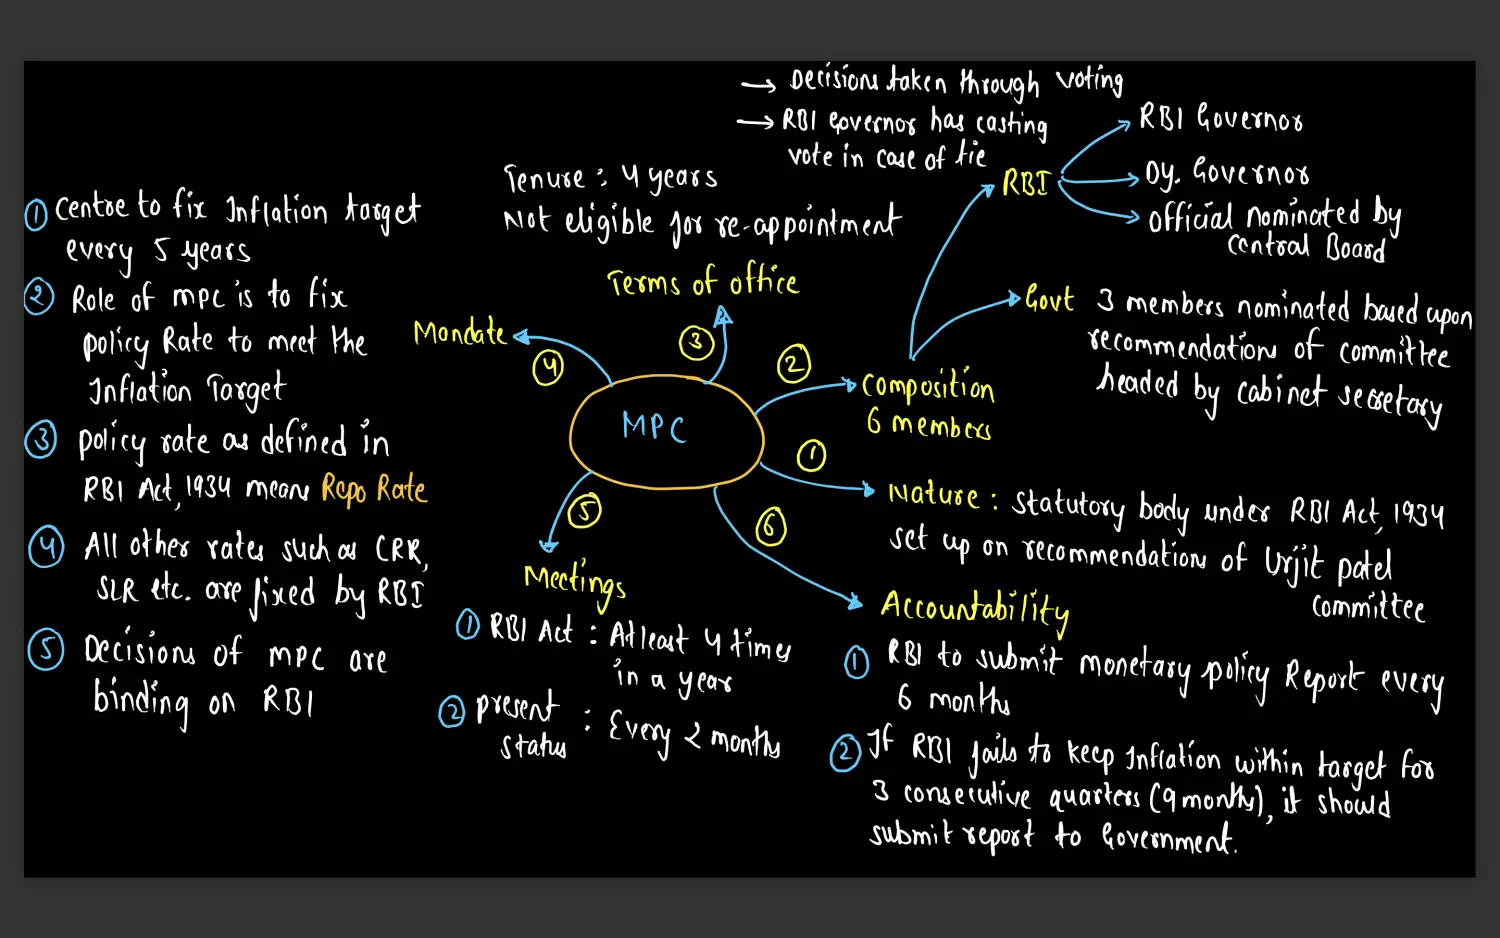 → Decisions taken through voting
→ RBI Governor has casting
vote in case of tie
RBI
RBI Governor
Dy. Governor
official nominated by
Central Board
Govt 3 members nominated based upon
recommendation of committee
headed by cabinet secretary
Tenure : 4 years
Not eligible for re-appointment
Terms of office
③
Mandate
④
① Centre to fix Inflation target
every 5 years
② Role of MPC is to fix
policy Rate to meet the
Inflation Target
③ policy rate as defined in
RBI Act, 1934 means Repo Rate
④ All other rates such as CRR,
SLR etc. are fixed by RBI
⑤ Decisions of MPC are
binding on RBI
MPC
②
Composition
6 members
①
Nature : Statutory body under RBI Act, 1934
set up on recommendations of Urjit patel
committee
⑤
Meetings
① RBI Act : Atleast 4 times
in a year
② present : Every 2 months
status
⑥
Accountability
① RBI to submit monetary policy Report every
6 months
② If RBI fails to keep Inflation within target for
3 consecutive quarters (9 months), it should
submit report to Government.